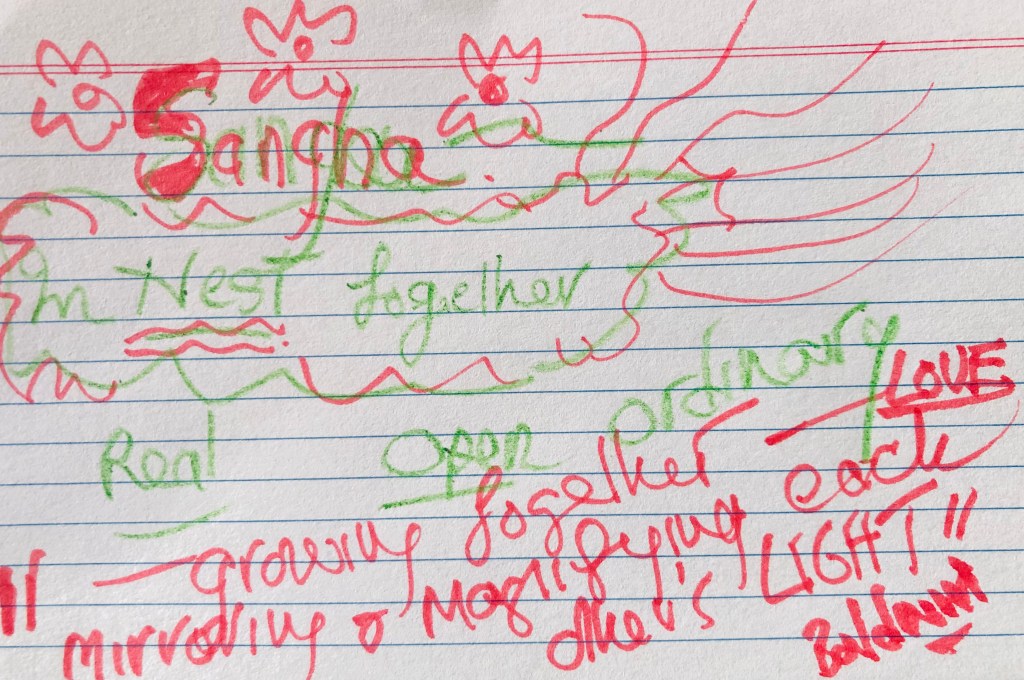 Sangha.
In Nest together
Real open ordinary
— growing together — LOVE
"mirroring & magnifying each
other's LIGHT"
Baldwin